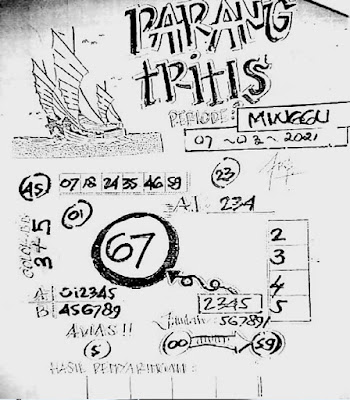 PARANG
TRITIS
PERIODE: MINGGU
07 ~ 03 ~ 2021
AS 07 18 24 35 46 59
23
01
A.I : 234
3+5
67
2
3
4
5
A : 012345
B : 456789
2345
Jumlah: 56789/
AWAS!!
5
00
59
HASIL PENYARINGAN: